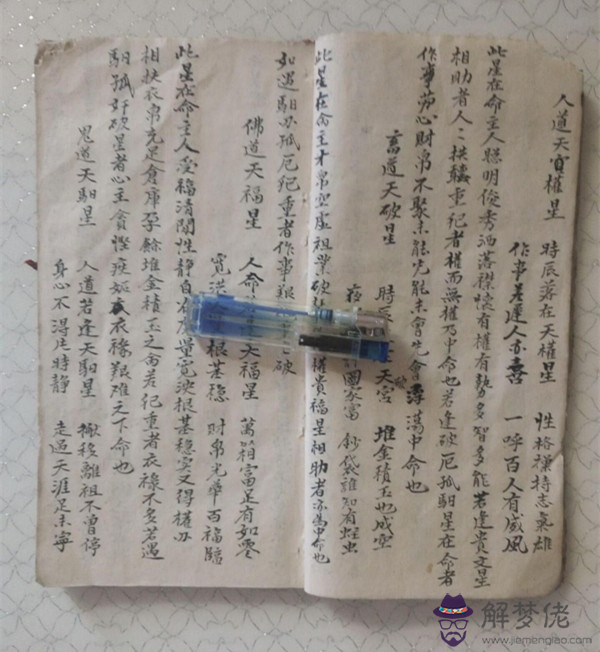 人道天權星
時辰落在天權星 性格操持志氣雄
作事差遲人亦喜 一呼百人有威風
此星在命主人聰明俊秀洒落襟懷有權有勢多智多能若逢貴文星
相助者人二拱重犯者權而無權乃中命也若逢破厄孤馹星在命者
作事勞心財帛不聚未能光能未會先會蕩中命也
畜道天破星
時辰天宮 堆金積玉也成空
夜計圖家富 鈔袋誰知有蛀虫
此星在命主才帛空虛祖業破權貴福星相助者亦為中命也
如遇馹亦孤厄犯重者作事艱破
佛道天福星
人命天福星 萬箱富足有如零
寬洪根基穩 財帛光華百福臨
此星在命主人受福清閑性静自度量寬洪根基穩实又得權亦
相扶衣帛充足倉庫孕餘堆金積玉之命若犯重者衣祿不多若遇
馹孤奸破星者心主貪慳疾妬衣祿艱难之下命也
鬼道天馹星
人道若逢天馹星 搬移離祖不曾停
身心不得片時静 走遍天涯足未寧
解梦佬
www.jiemenglao.com